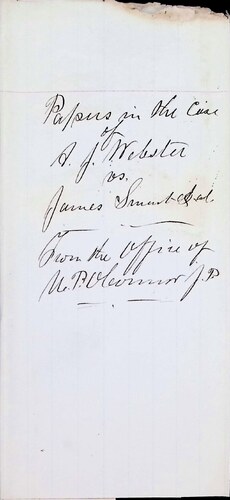 Papers in the Case
of
A. J. Webster
vs.
James Smart et al.
From the Office of
M. P. O'Connor J. P